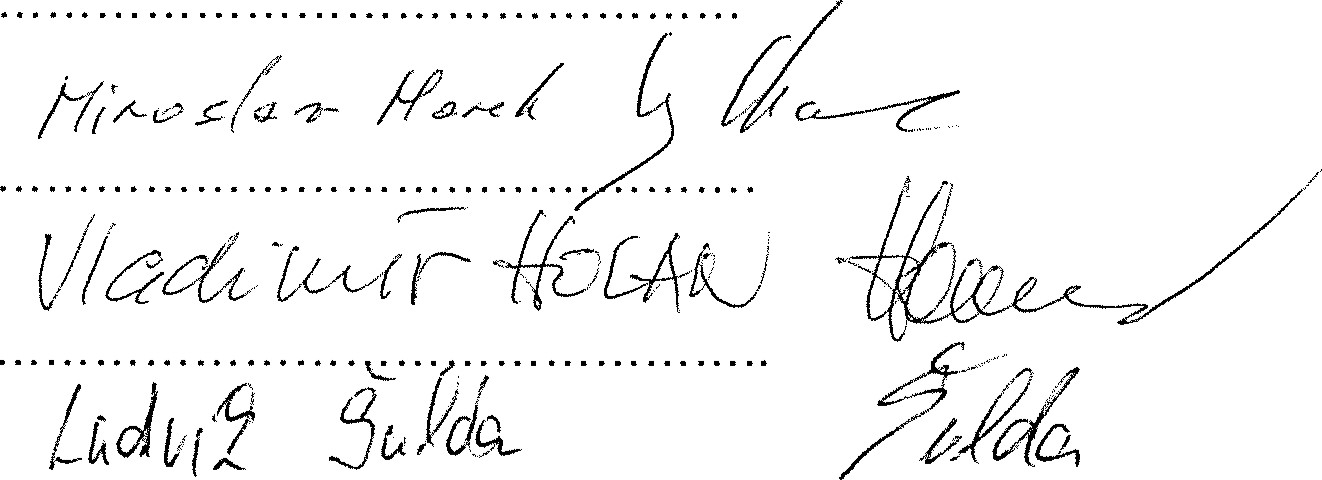 Miroslav Marek
Vladimír HOLAN Holan
Ludvig Šulda Šulda